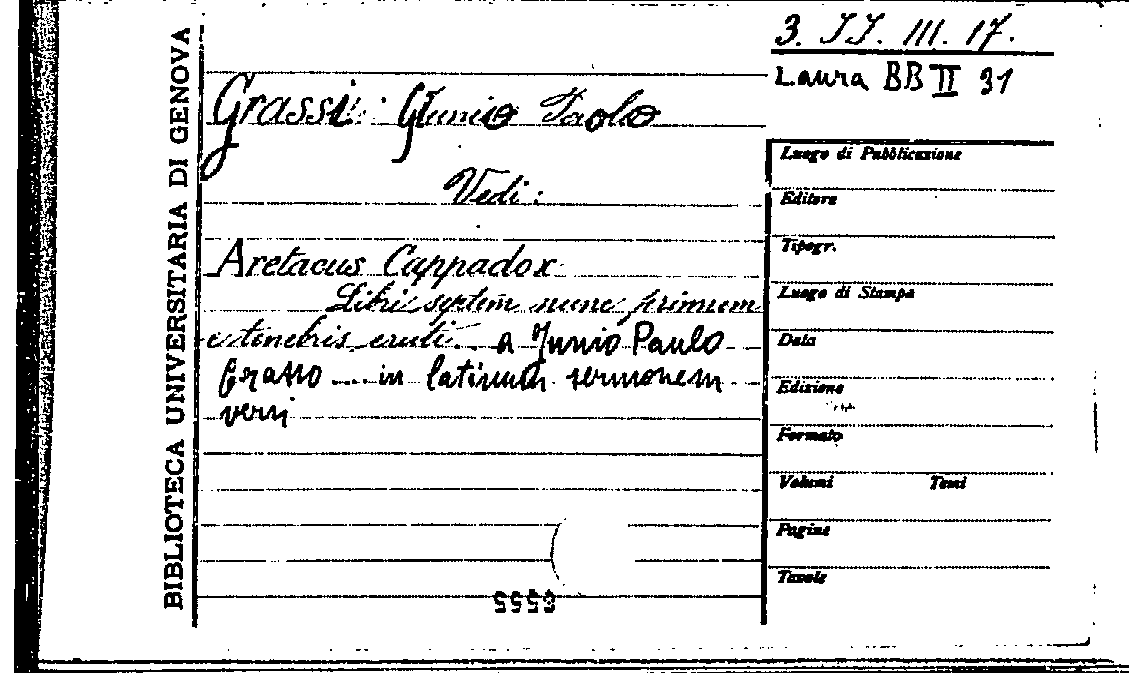 BIBLIOTECA UNIVERSITARIA DI GENOVA
3. JJ. III. 17.
Laura BB II 31
Grassi Giunio Paolo
Vedi:
Aretaeus Cappadox
Libri septem nunc primum
e tenebris eruti... a Junio Paulo
Grasso .... in latinum sermonem
versi
Luogo di Pubblicazione
Editore
Tipogr.
Luogo di Stampa
Data
Edizione
Formato
Volumi Tomi
Pagine
Tavole